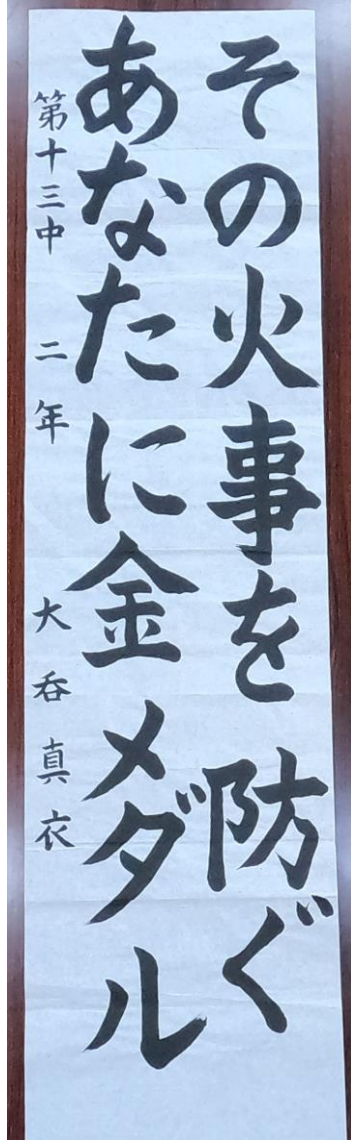 その火事を防ぐ
あなたに金メダル
第十三中 二年 大呑真衣